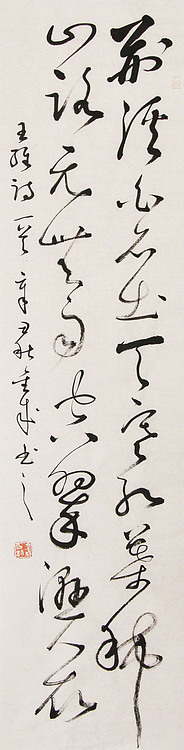 荆溪白石出天寒红葉稀
山路元無雨空翠濕人衣
王維詩一首辛丑秋成书之